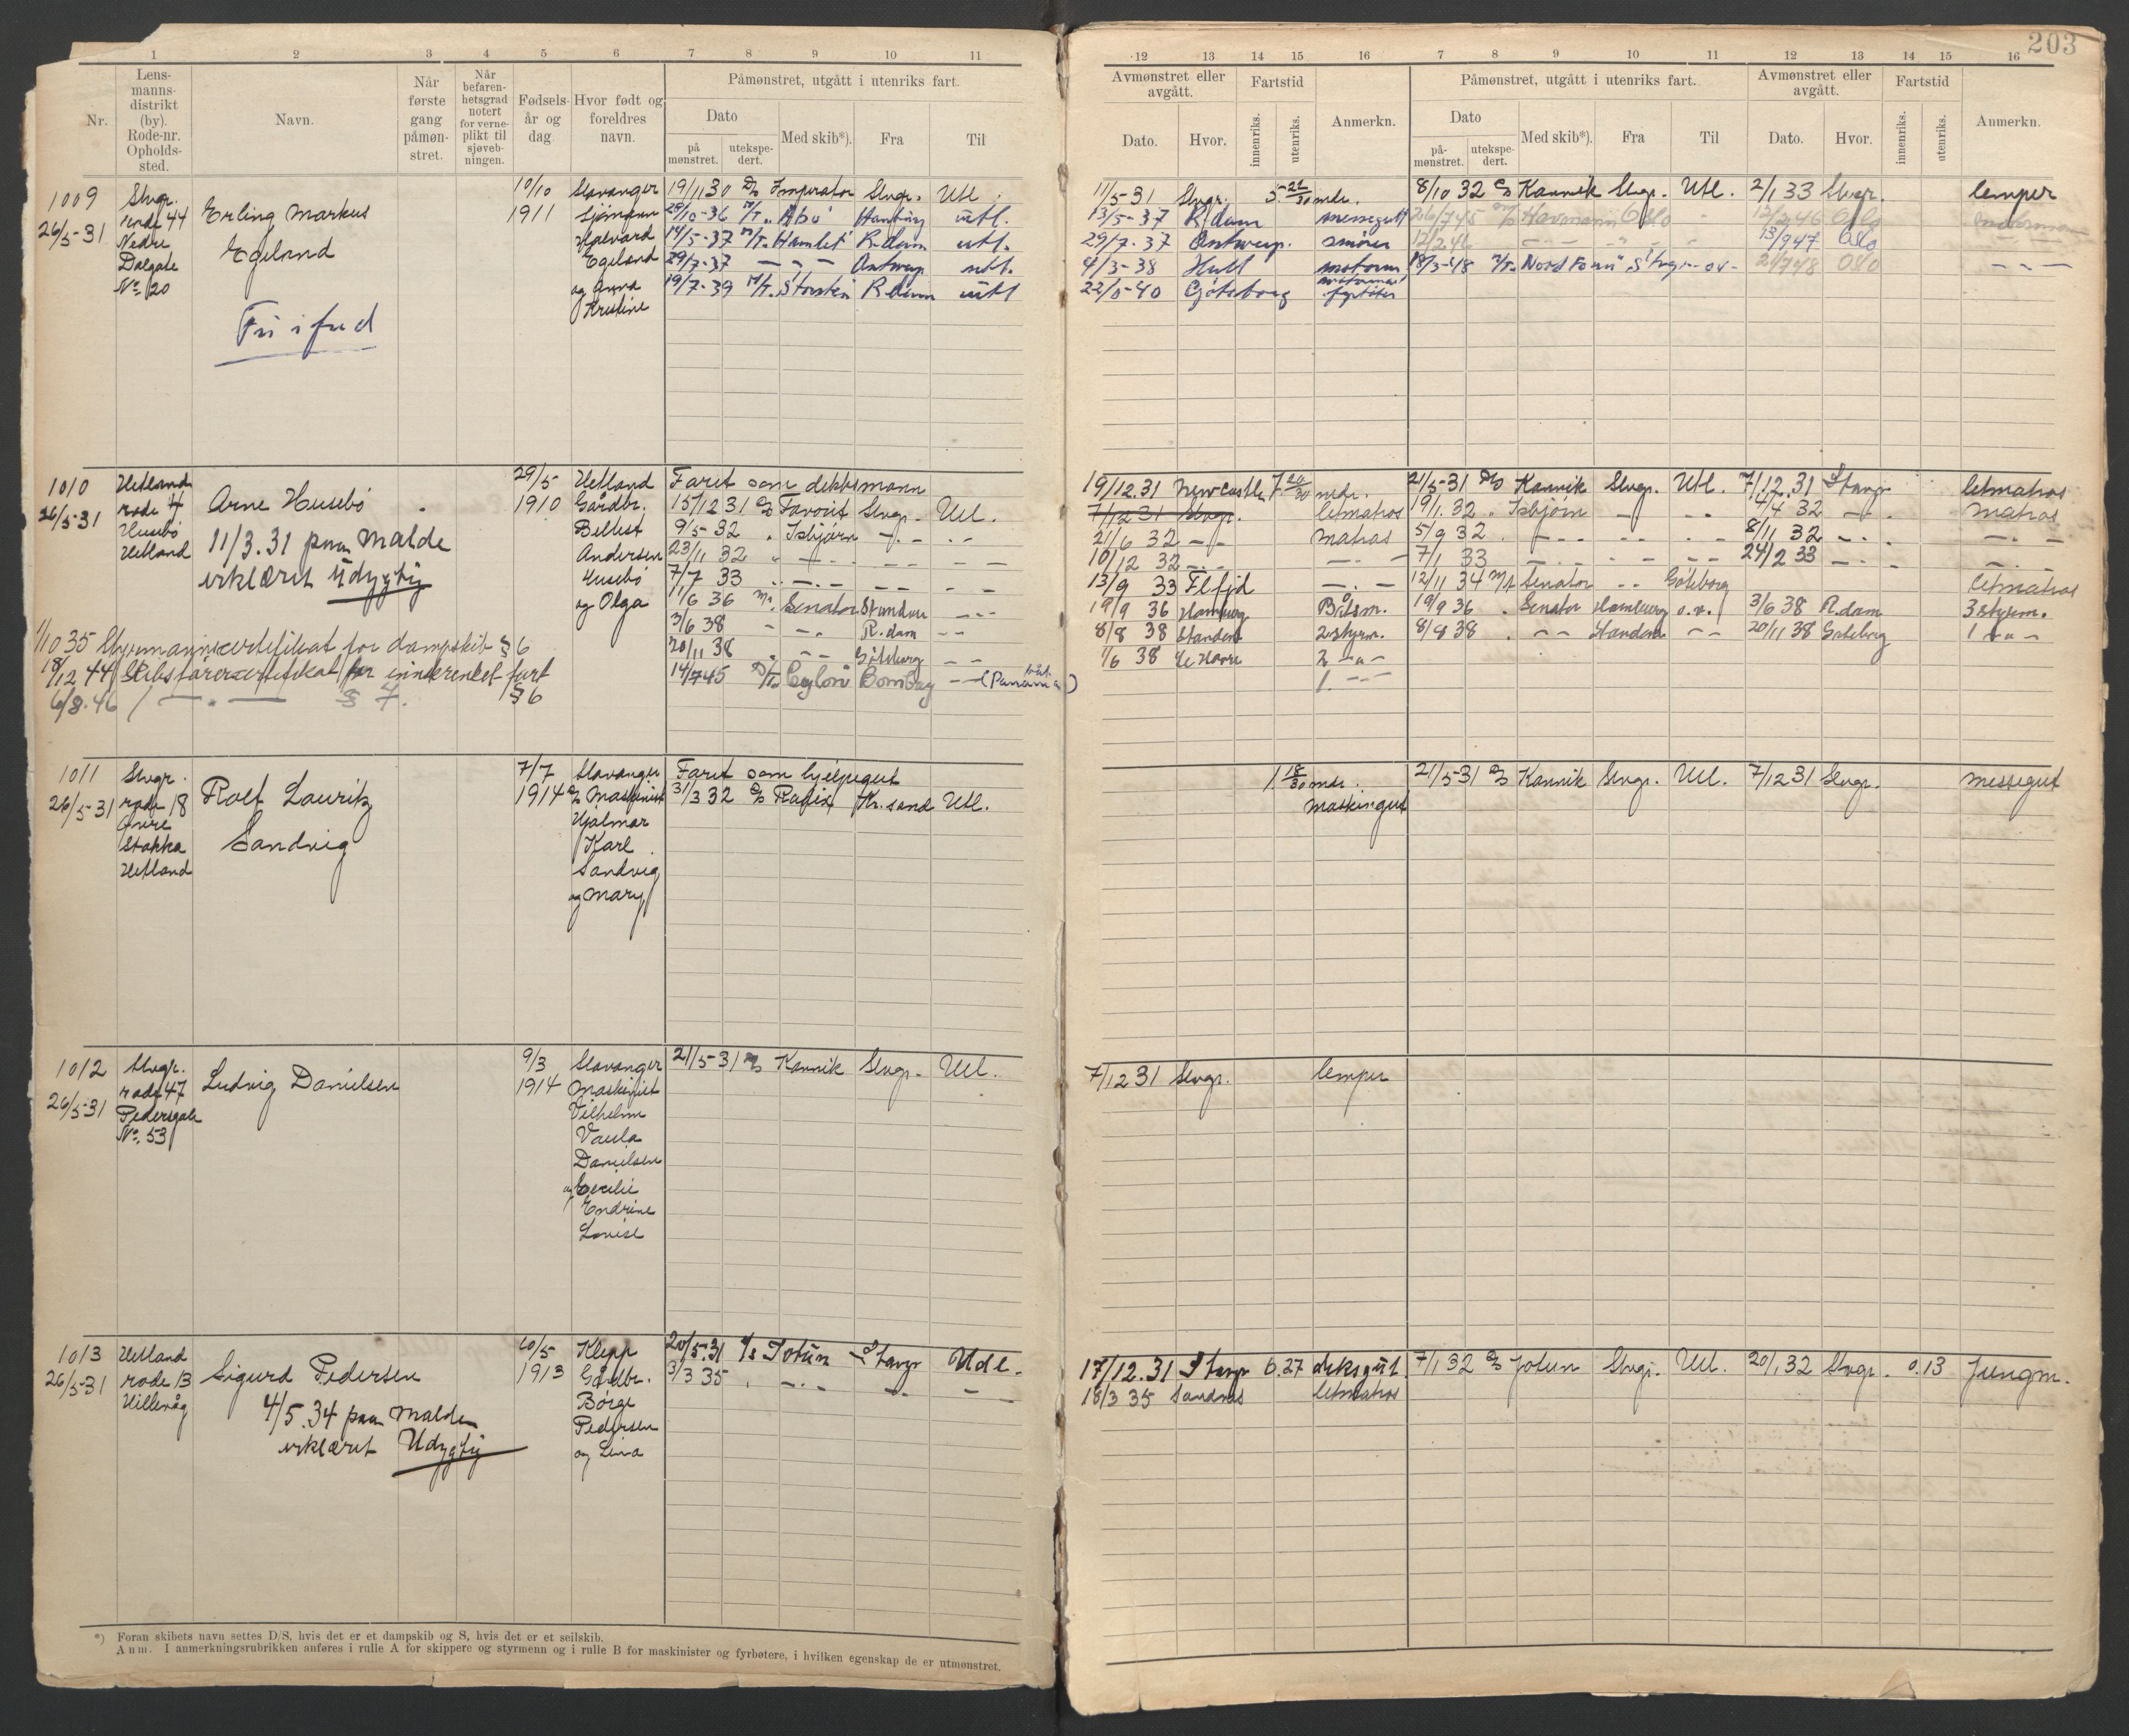 203
1 2 3 4 5 6 7 8 9 10 11
12 13 14 15 16 7 8 9 10 11 12 13 14 15 16
Nr.
Lens-
manns-
distrikt
(by).
Rode-nr.
Opholds-
sted.
Navn.
Når
første
gang
påmøn-
stret.
Når
befaren-
hetsgrad
notert
for verne-
plikt til
sjøveb-
ningen.
Fødsels-
år og
dag.
Hvor født og
foreldres
navn.
Påmønstret, utgått i utenriks fart.
Dato
på
mønstret.
utekspe-
dert.
Med skib*).
Fra
Til
Avmønstret eller
avgått.
Dato.
Hvor.
Fartstid
innenriks.
utenriks.
Anmerkn.
Påmønstret, utgått i utenriks fart.
Dato
på-
mønstret.
utekspe-
dert.
Med skib*).
Fra
Til
Avmønstret eller
avgått.
Dato.
Hvor.
Fartstid
innenriks.
utenriks.
Anmerkn.
1009
26/5-31
Stvgr.
rode 44
Nedre
Dalgate
No. 20
Erling Markus
Egeland
Fri i fred
10/10
1911
Stavanger
Sjømann
Halvard
Egeland
og Anna
Kristine
19/11 30 D/S Imperator Stvgr. Utl.
29/10-36 M/T "Abu" Hamburg utl.
14/5-37 M/T "Hamlet" R.dam utl.
29/7-37 — — — Antwerp utl.
19/7-39 M/T "Storsten" R.dam utl
11/5-31 Stvgr. mdr.
13/5-37 R.dam messegutt
29/7-37 Antwerp. smører
4/3-38 Hull motorm
22/5-40 Göteborg
8/10 32 D/S Kannik Stvgr. Utl. 2/1 33 Stvgr. lemper
26/7 45 Havmann Oslo 12/2 46 Oslo
12/2 46 — — — 13/9 47 Oslo
18/3-48 Oslo — " —
1010
26/5-31
Hetland
rode 4
Husebø
Hetland
Arne Husebø
11/3.31 paa Malde
erklæret Udygtig
1/10 35 Styrmannscertifikat for dampskib § 6
18/12 44 Skibsførercertifikat for innskrenket fart
§ 6
6/8.46 / — " — § 7.
29/5
1910
Hetland
Gårdbr.
Andersen
Husebø
og Olga
Faret som dekksmann
15/12 31 D/S Favorit Stvgr. Utl.
9/5-32 " Isbjørn — " —
23/11 32 " — " —
7/7 33 " — " —
11/6 36 M/T Senator
3/6 38 " — " — R.dam — —
20/11 38 " — — Göteborg — —
14/7 45 Ceylon Bombay — (Panama)
19/12.31 Newcastle 7 20/30 mdr.
7/12 31 Stvgr. letmatros
21/6 32 — " — Matros
10/12 32 — " — — " —
13/9 33 Flfjd — " —
19/9 36 Hamburg Båtsm.
8/8 38 2 styrm.
1/6 38 Le Havre 2 — " —
1. — " —
21/5-31 D/S Kannik Stvgr. Utl. 7/12.31 Stavgr letmatros
19/1.32 " Isbjørn — " — 4/4 32 — " — matros
5/9 32 " — " — 8/11 32 — " — — " —
7/1 33 — " — 24/2 33 — " — — " —
12/11 34 M/T Senator — " — Göteborg letmatros
19/9 36 " Senator Hamburg o.v. 3/6 38 R.dam 3 styrm.
8/8 38 " — — — — 20/11 38 Goteborg 1 — " —
1011
26/5-31
Stvgr.
rode 18
Øvre
Stokka
Hetland
Rolf Lauritz
Sandvig
7/7
1914
Stavanger
Maskinist
Hjalmar
Karl
Sandvig
og Mary
Faret som hjelpegut
31/3 32 D/S Radix Kr.sand Utl.
1 18/30 mdr.
Maskingut
21/5-31 D/S Kannik Stvgr. Utl. 7/12 31 Stvgr. messegut
1012
26/5-31
Stvgr.
rode 47
Pedersgate
No. 53
Ludvig Danielsen
9/3
1914
Stavanger
Maskinist
Vilhelm
Vaula
Danielsen
og Cecilie
Endrine
Lovise
21/5-31 D/S Kannik Stvgr. Utl.
7/12 31 Stvgr. lemper
1013
26/5-31
Hetland
rode 13
Hillevåg
Sigurd Pedersen
4/5.34 paa Malde
erklæret Udygtig
1913
Klepp
Gårdbr.
Børge
Pedersen
og Lina
20/5.31 D/S Jotun Stavgr Utl.
3/3 35 " — " — — " — —
17/12.31 Stavgr 6.27 deksgut.
18/3 35 Sandnes letmatros
7/1 32 D/S Jotun Stvgr. Utl. 20/1 32 Stvgr. 0.13 Jungm.
*) Foran skibets navn settes D/S, hvis det er et dampskib og S, hvis det er et seilskib.
Anm. I anmerkningsrubrikken anføres i rulle A for skippere og styrmenn og i rulle B for maskinister og fyrbøtere, i hvilken egenskap de er utmønstret.